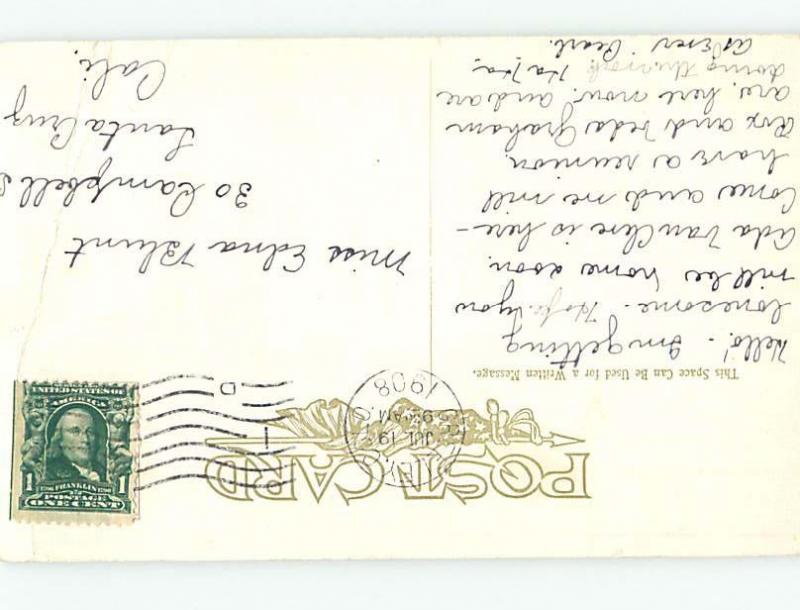 POST CARD
This Space Can Be Used for a Written Message.
Hello! - Im getting
lonesome - Hope you
will be home soon.
Ada Van Cleve is here -
Come and we will
have a reunion.
Rox and Veda Graham
are here now. and are
doing the rock Ha Ha.
as Ever Pearl.
Miss Edna Blunt
30 Campbell S
Santa Cruz
Cali.
JUL 19
9 AM
1908
D
1
UNITED STATES OF
AMERICA
1
FRANKLIN
POSTAGE
ONE CENT